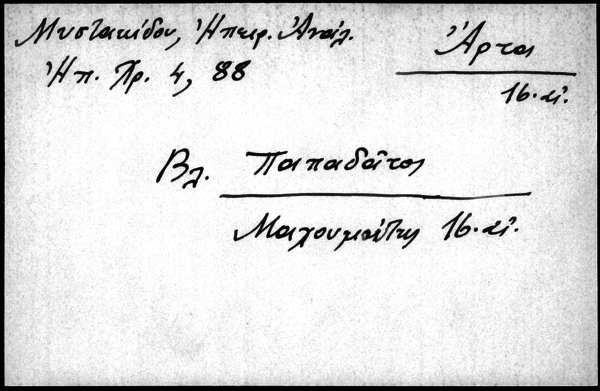 Μυστακίδου, Ἠπειρ. Ἀνάλ.
Ἠπ. Χρ. 4, 88
Ἄρτα
16. αἰ.
Βλ. Παπαδᾶτοι
16. αἰ.